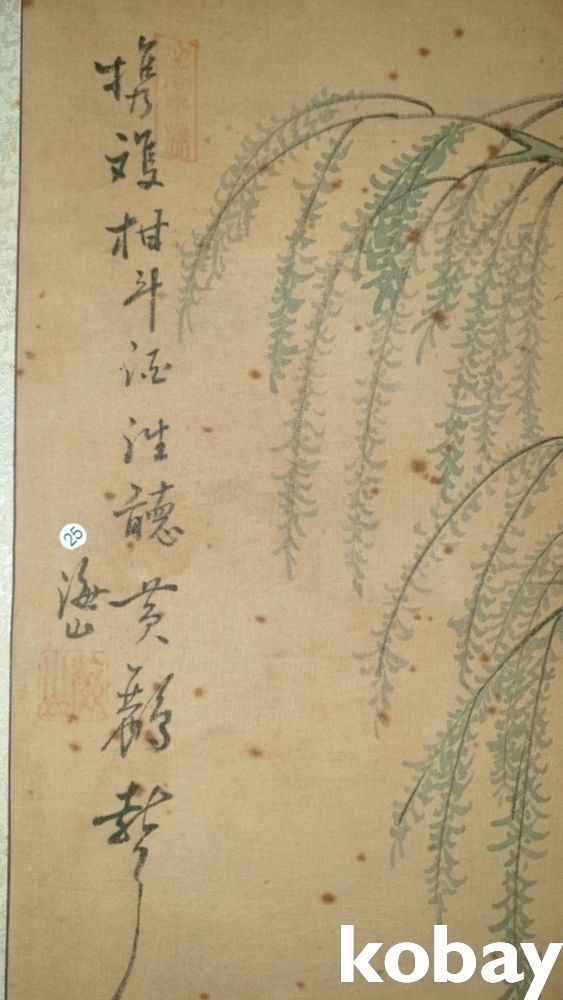 携雙柑斗酒往聽黄鸝聲
海山
25
kobay